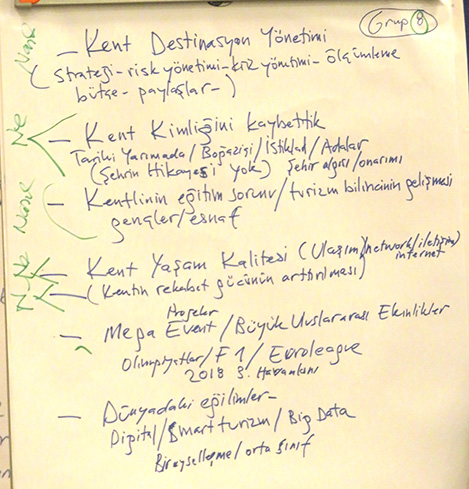 Grup 8
Nasıl
— Kent Destinasyon Yönetimi
(Strateji - risk yönetimi - kriz yönetimi - ölçümleme
bütçe - paylaşlar - )
Ne
— Kent Kimliğini kaybettik
Tarihi Yarımada / Boğaziçi / İstiklal / Adalar
(Şehrin Hikayesi yok) Şehir algısı/onarımı
Nasıl
— Kentlinin eğitim sorunu / turizm bilincinin gelişmesi
gençler / esnaf
Ne
— Kent Yaşam Kalitesi (Ulaşım/network/iletişim/
internet
N
— (Kentin rekabet gücünün arttırılması)
Projeler
— Mega Event / Büyük Uluslararası Etkinlikler
Olimpiyatlar / F1 / Euroleague
2018 3. Havaalanı
— Dünyadaki eğilimler -
Digital / Smart turizm / Big Data
Bireyselleşme / orta sınıf